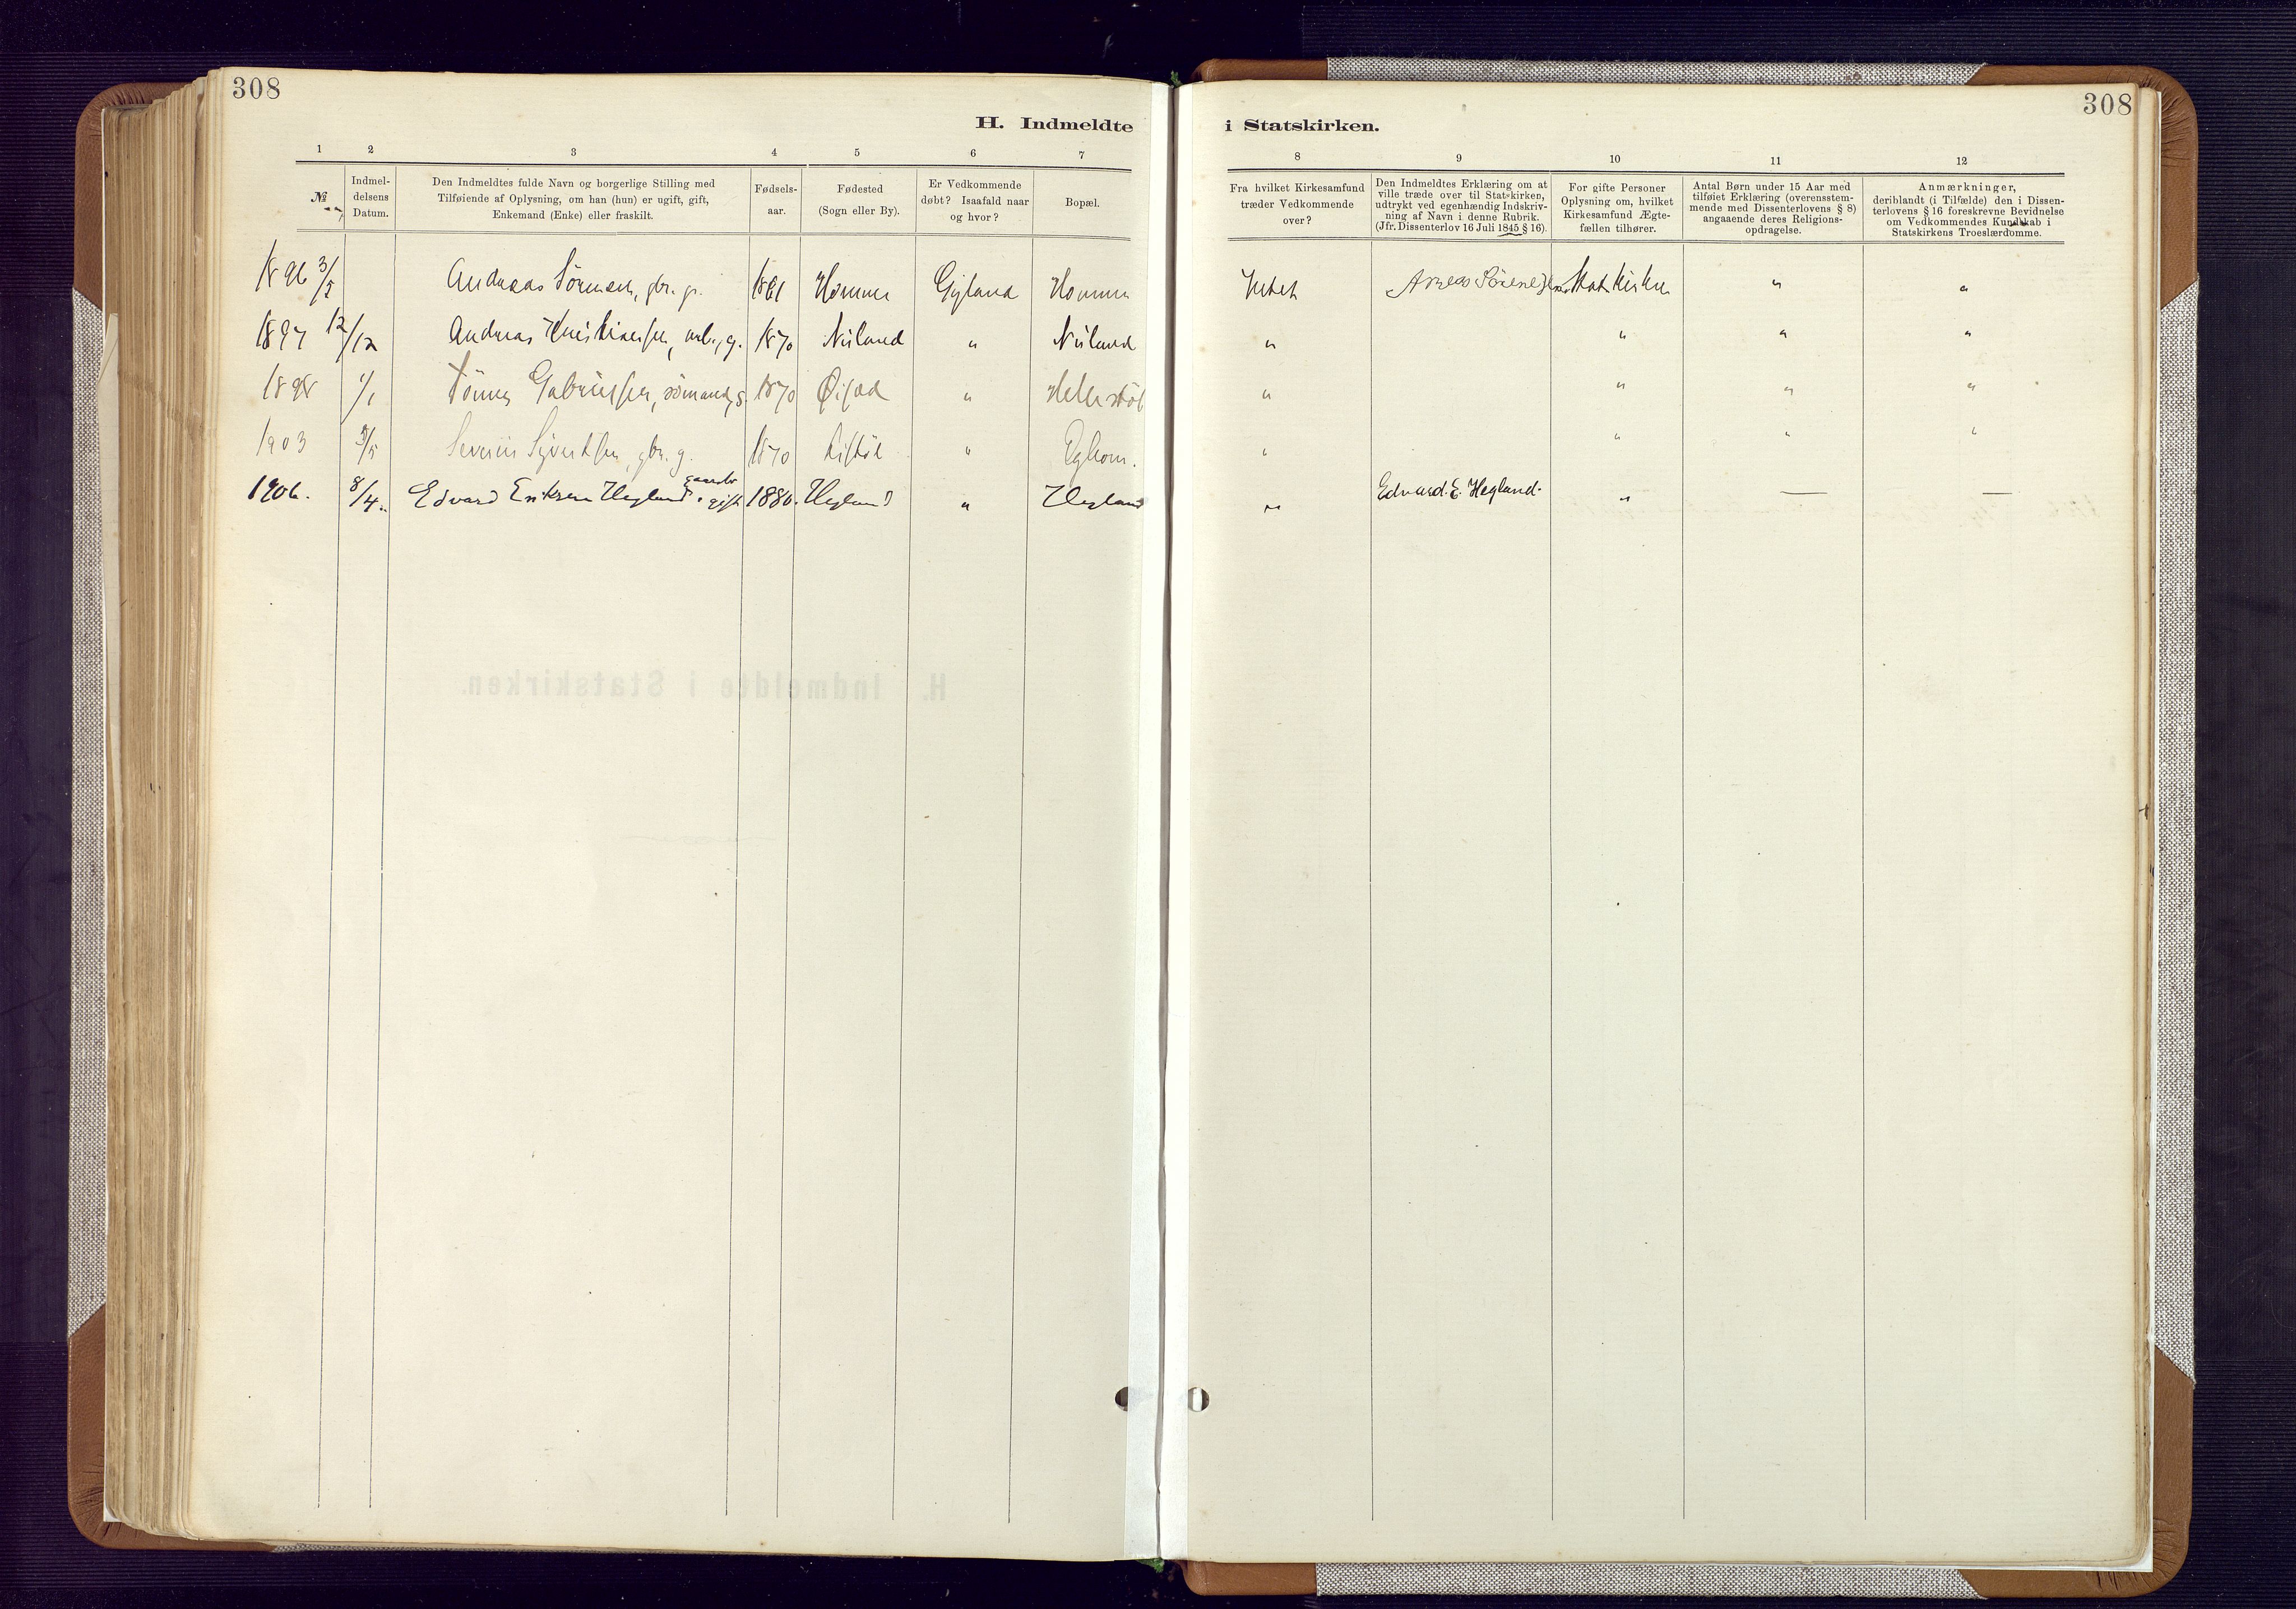 308
308
H. Indmeldte i Statskirken.
1 2 3 4 5 6 7 8 9 10 11 12
№
Indmel-
delsens
Datum.
Den Indmeldtes fulde Navn og borgerlige Stilling med
Tilføiende af Oplysning, om han (hun) er ugift, gift,
Enkemand (Enke) eller fraskilt.
Fødsels-
aar.
Fødested
(Sogn eller By).
Er Vedkommende
døbt? Isaafald naar
og hvor?
Bopæl.
Fra hvilket Kirkesamfund
træder Vedkommende
over?
Den Indmeldtes Erklæring om at
ville træde over til Statskirken,
udtrykt ved egenhændig Indskriv-
ning af Navn i denne Rubrik.
(Jfr. Dissenterlov 16 Juli 1845 § 16).
For gifte Personer
Oplysning om, hvilket
Kirkesamfund Ægte-
fællen tilhører.
Antal Børn under 15 Aar med
tilføiet Erklæring (overensstem-
mende med Dissenterlovens § 8)
angaaende deres Religions-
opdragelse.
Anmærkninger,
deriblandt (i Tilfælde) den i Dissen-
terlovens § 16 foreskrevne Bevidnelse
om Vedkommendes Kundskab i
Statskirkens Troeslærdomme.
1896 3/5 Andreas Sörensen, gbr. g. 1861 Homme Gyland Homme Intet Statskirken " "
1897 12/12 Andreas Kristiansen, arb., g. 1870 Niland " Niland " " " "
1898 1/1 Tönnes Gabrielsen, sömand, g. 1870 Øifjed " " " " "
1903 Severin Sivertsen, gbr. g. 1870 " " " " "
1906. 8/4. Edvard Eriksen Hegland, gaardbr gift 1880. Hegland " Hegland " Edvard. E. Hegland. " — —